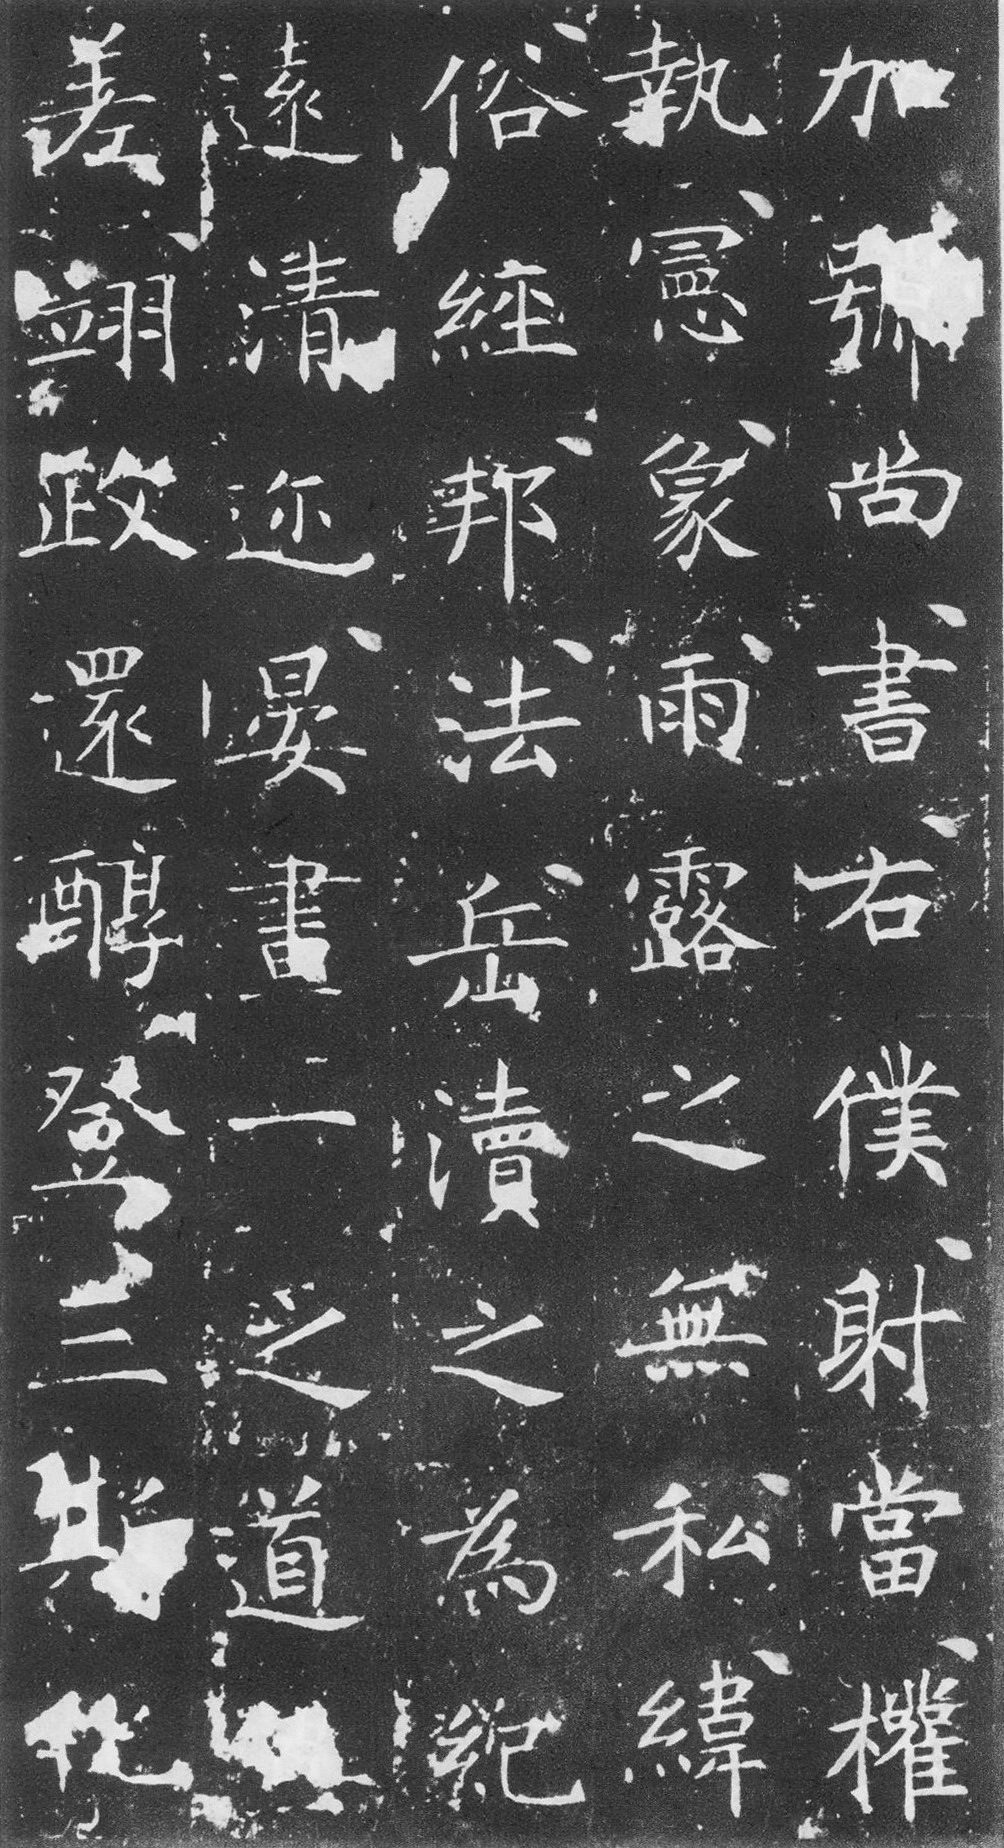 加號尚書右僕射當權
執憲象雨露之無私緯
俗經邦法岳瀆之為紀
遠清迩晏書一之道
差翊政還醇登三斯